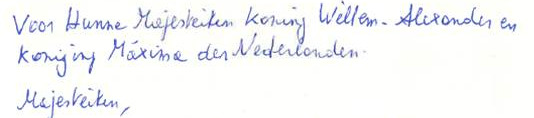 Voor Hunne Majesteiten Koning Willem-Alexander en
Koningin Máxima der Nederlanden.
Majesteiten,